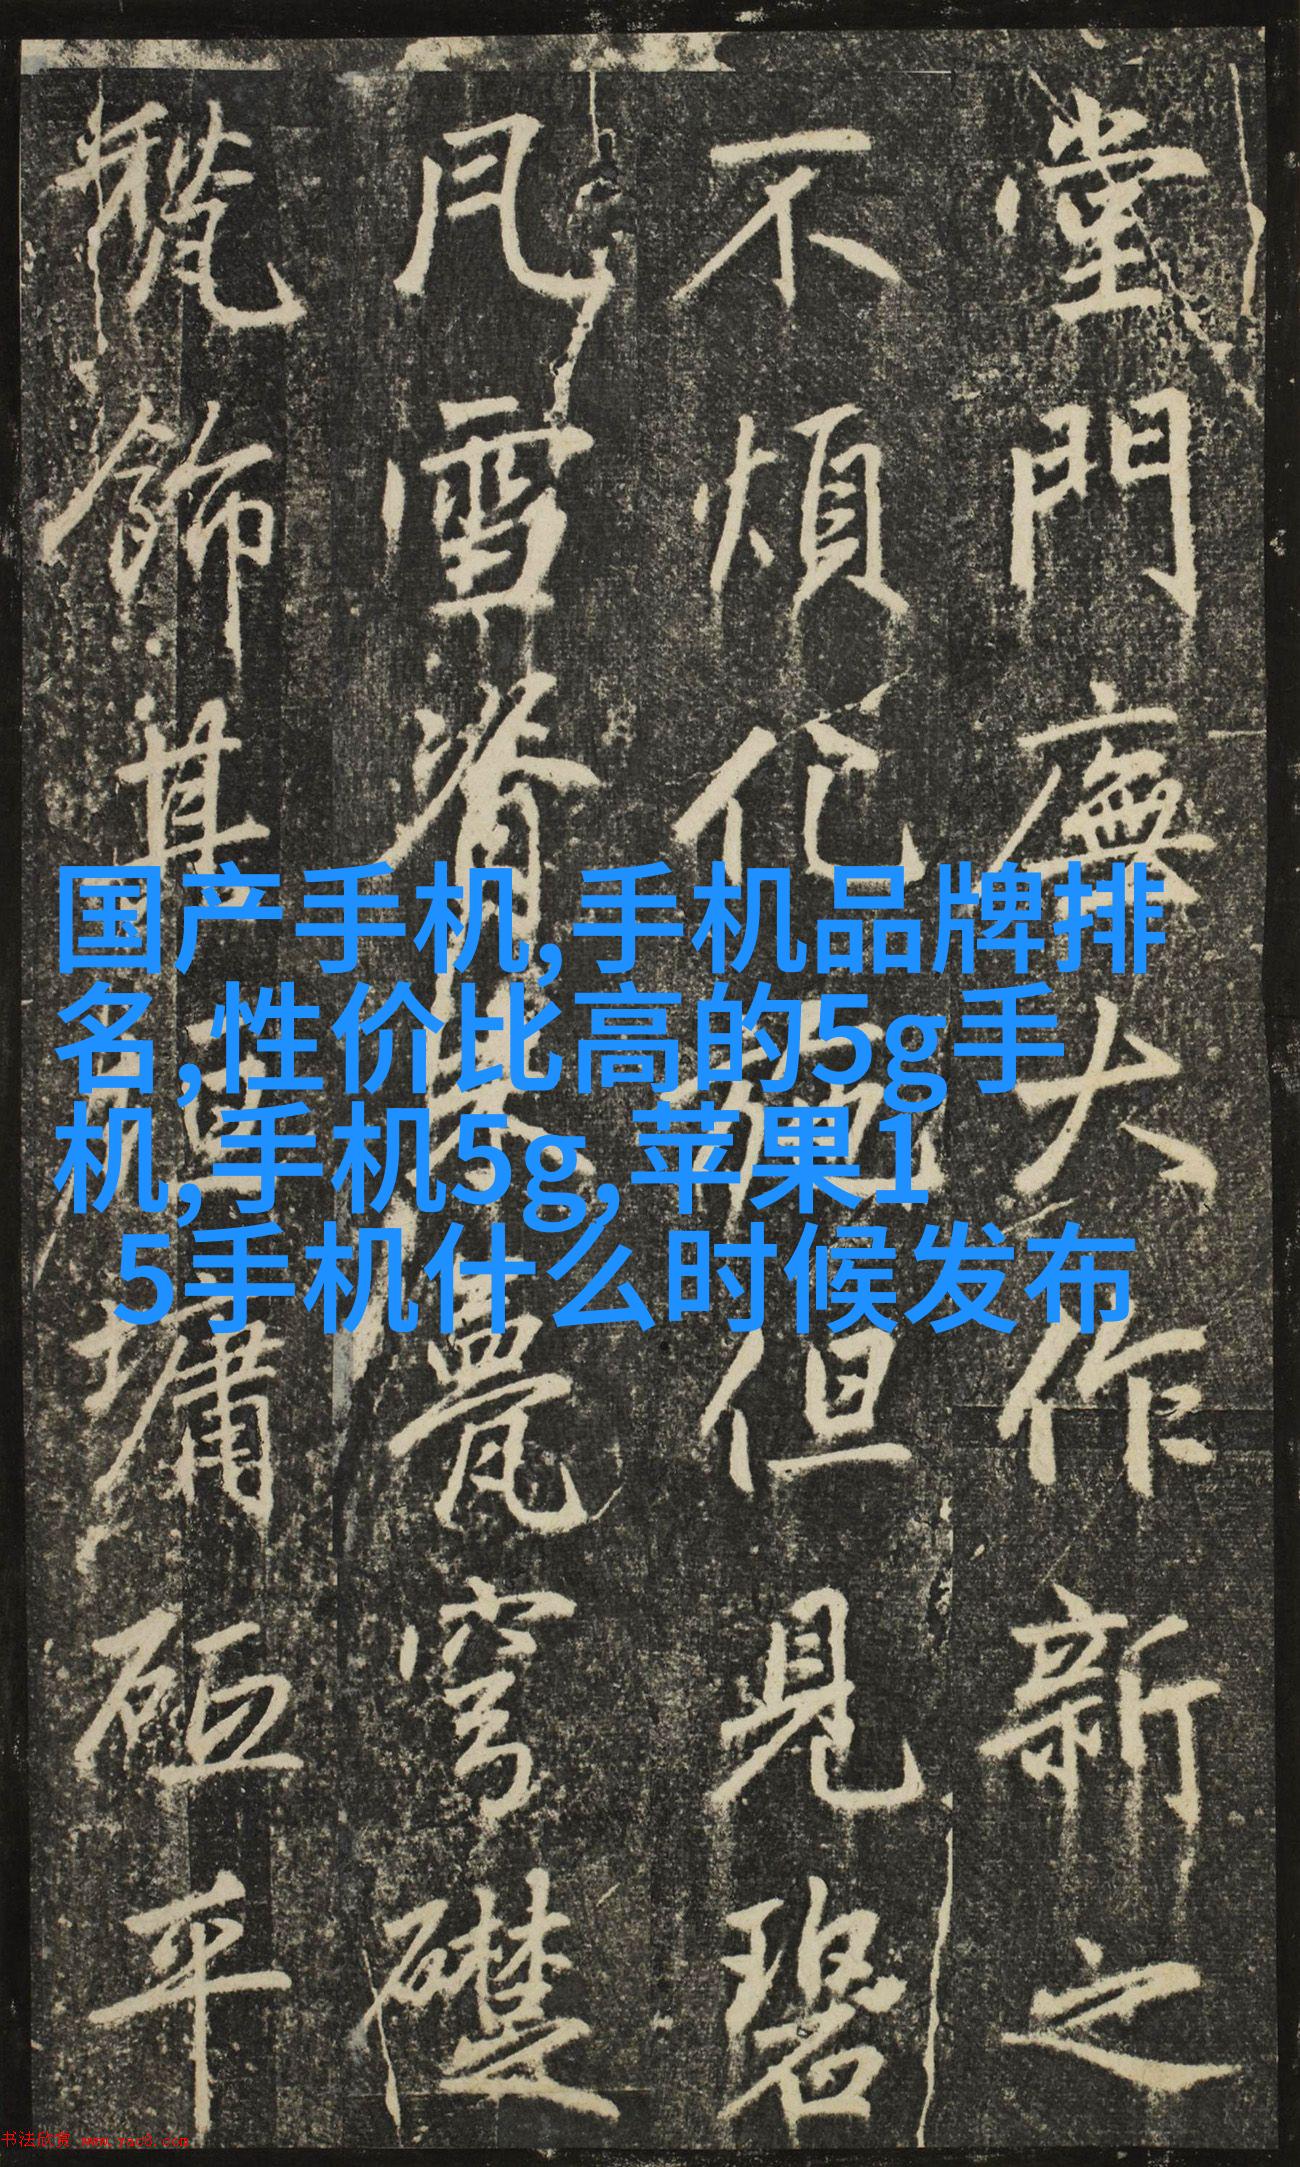 堂門廡大作新之
不煩化施但見碧
凡雪脊甍穹礎
飾基墉砠平
国产手机,手机品牌排
名,性价比高的5g手
机,手机5g,苹果1
5手机什么时候发布
书法欣赏 www.yac8.com